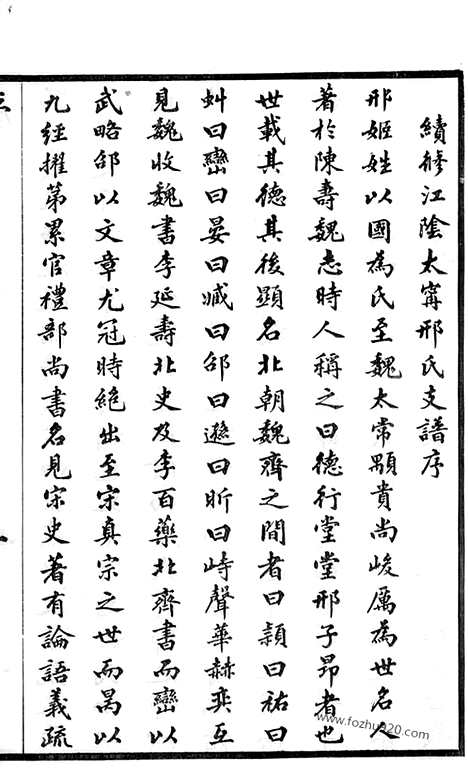 續修江陰太甯邢氏支譜序
邢姬姓以國為氏至魏太常顒貴尚峻厲為世名人
著於陳壽魏志時人稱之曰德行堂堂邢子昂者也
世載其德其後顯名北朝魏齊之間者曰頴曰祐曰
虯曰巒曰晏曰臧曰邵曰遜曰昕曰峙聲華赫奕互
見魏收魏書李延壽北史及李百藥北齊書而巒以
武略邵以文章尤冠時絶出至宋真宗之世而昺以
九經擢第累官禮部尚書名見宋史著有論語義疏
www.fozhu920.com